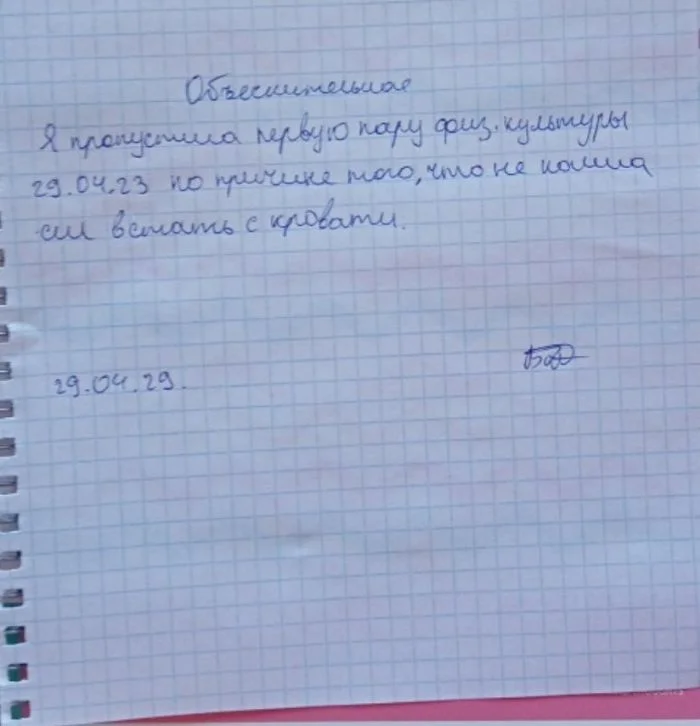 Объеснительная
Я пропустила первую пару физ.культуры
29.04.23 по причине того, что не нашла
сил встать с кровати.
29.04.29.